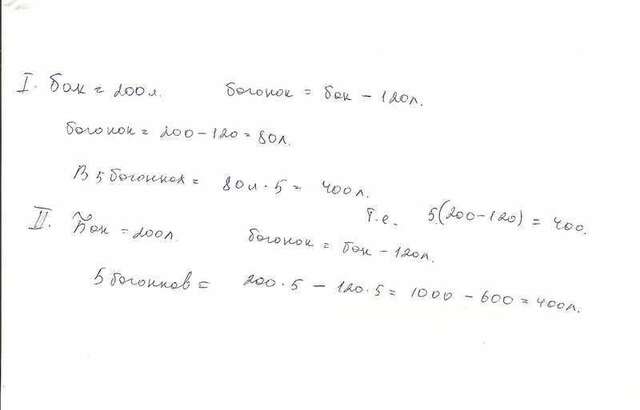 I. Бак = 200л. бочонок = бак - 120л.
бочонок = 200 - 120 = 80л.
В 5 бочонках = 80л · 5 = 400л.
Т.е. 5(200-120) = 400.
II. Бак = 200л. бочонок = бак - 120л.
5 бочонков = 200 · 5 - 120 · 5 = 1000 - 600 = 400л.